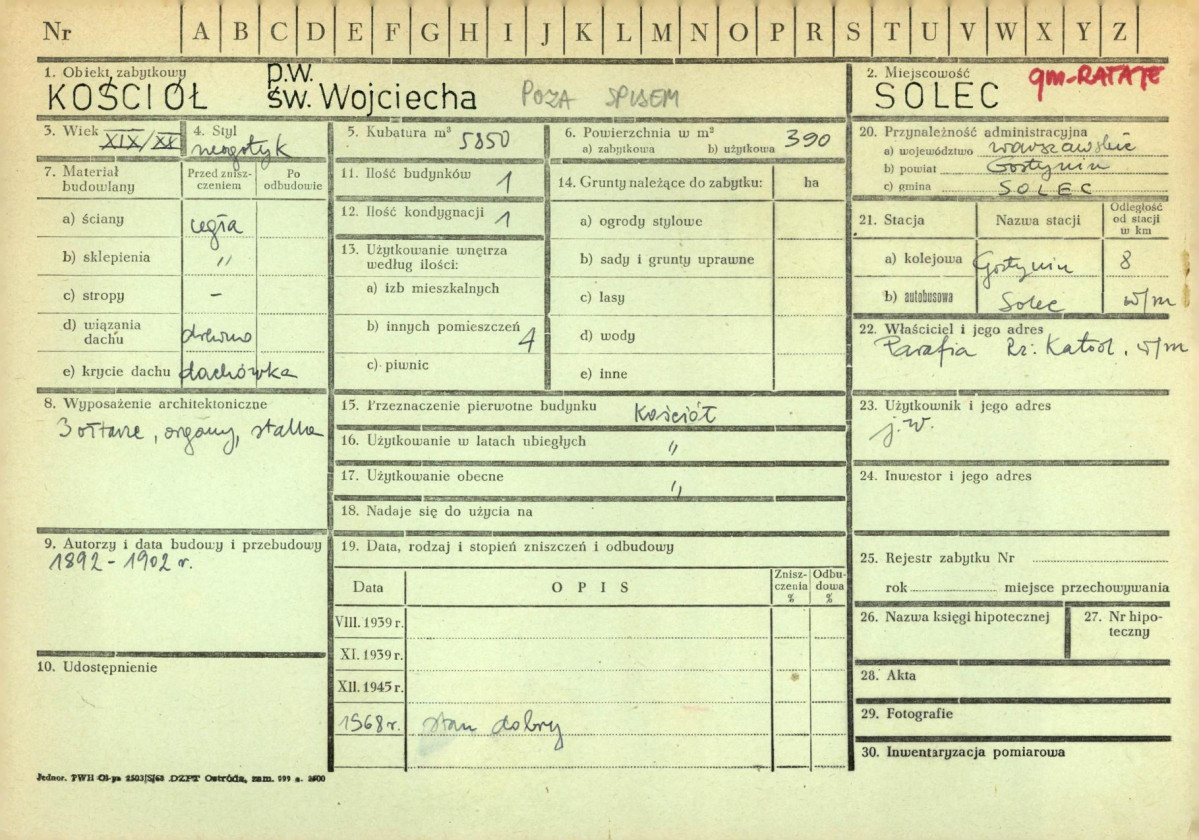 Nr A B C D E F G H I J K L M N O P R S T U V W X Y Z
1. Obiekt zabytkowy
KOŚCIÓŁ p.w. św. Wojciecha POZA SPISEM
2. Miejscowość
SOLEC gm-RATAJE
3. Wiek XIX/XX
4. Styl neogotyk
5. Kubatura m³ 5850
6. Powierzchnia w m²
a) zabytkowa b) użytkowa 390
7. Materiał budowlany
Przed znisz-
czeniem
Po
odbudowie
a) ściany cegła
b) sklepienia "
c) stropy -
d) wiązania
dachu drewno
e) krycie dachu dachówka
8. Wyposażenie architektoniczne
3 ołtarze, organy, stalla
9. Autorzy i data budowy i przebudowy
1892 - 1902 r.
10. Udostępnienie
11. Ilość budynków 1
12. Ilość kondygnacji 1
13. Użytkowanie wnętrza
według ilości:
a) izb mieszkalnych
b) innych pomieszczeń 4
c) piwnic
14. Grunty należące do zabytku: ha
a) ogrody stylowe
b) sady i grunty uprawne
c) lasy
d) wody
e) inne
15. Przeznaczenie pierwotne budynku Kościół
16. Użytkowanie w latach ubiegłych "
17. Użytkowanie obecne "
18. Nadaje się do użycia na
19. Data, rodzaj i stopień zniszczeń i odbudowy
Data
OPIS
Znisz-
czenia
%
Odbu-
dowa
%
VIII. 1939 r.
XI. 1939 r.
XII. 1945 r.
1968 r. stan dobry
20. Przynależność administracyjna
a) województwo warszawskie
b) powiat Gostynin
c) gmina SOLEC
21. Stacja
Nazwa stacji
Odległość
od stacji
w km
a) kolejowa Gostynin 8
b) autobusowa Solec w/m
22. Właściciel i jego adres
Parafia Rz: Katol. w/m
23. Użytkownik i jego adres
j.w.
24. Inwestor i jego adres
25. Rejestr zabytku Nr
rok miejsce przechowywania
26. Nazwa księgi hipotecznej
27. Nr hipo-
teczny
28. Akta
29. Fotografie
30. Inwentaryzacja pomiarowa
Jednor. PWH Ol-pa 2503/S/68 DZPT Ostróda, zam. 999 n. 2500